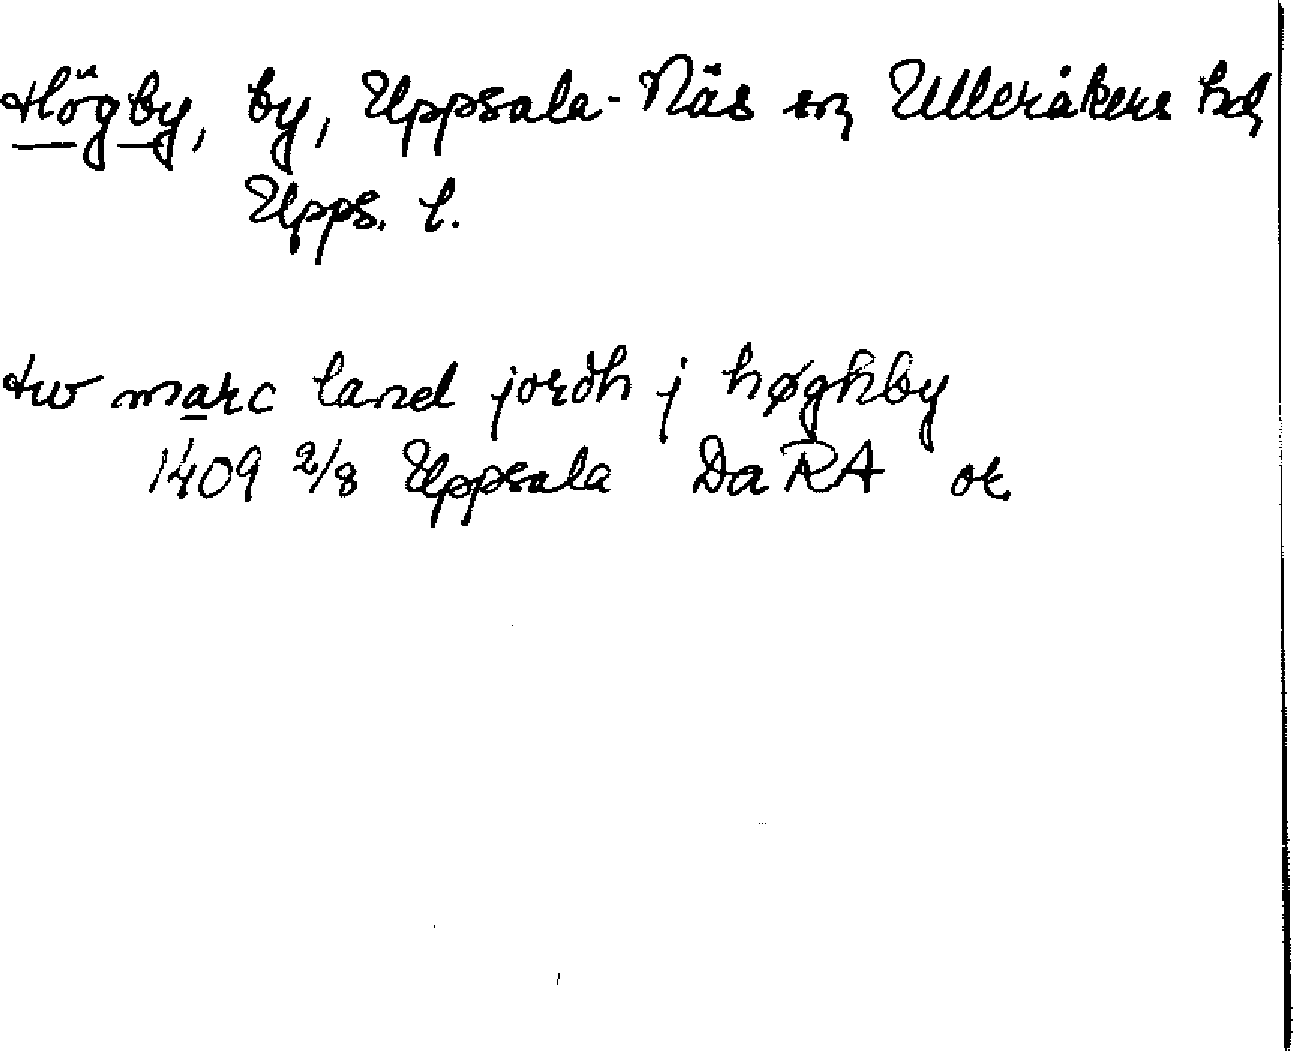 Högby, by, Uppsala-Näs sn, Ulleråkers hd,
Upps. l.
tw marc land jordh j høghby
1409 2/8 Uppsala Da RA or.